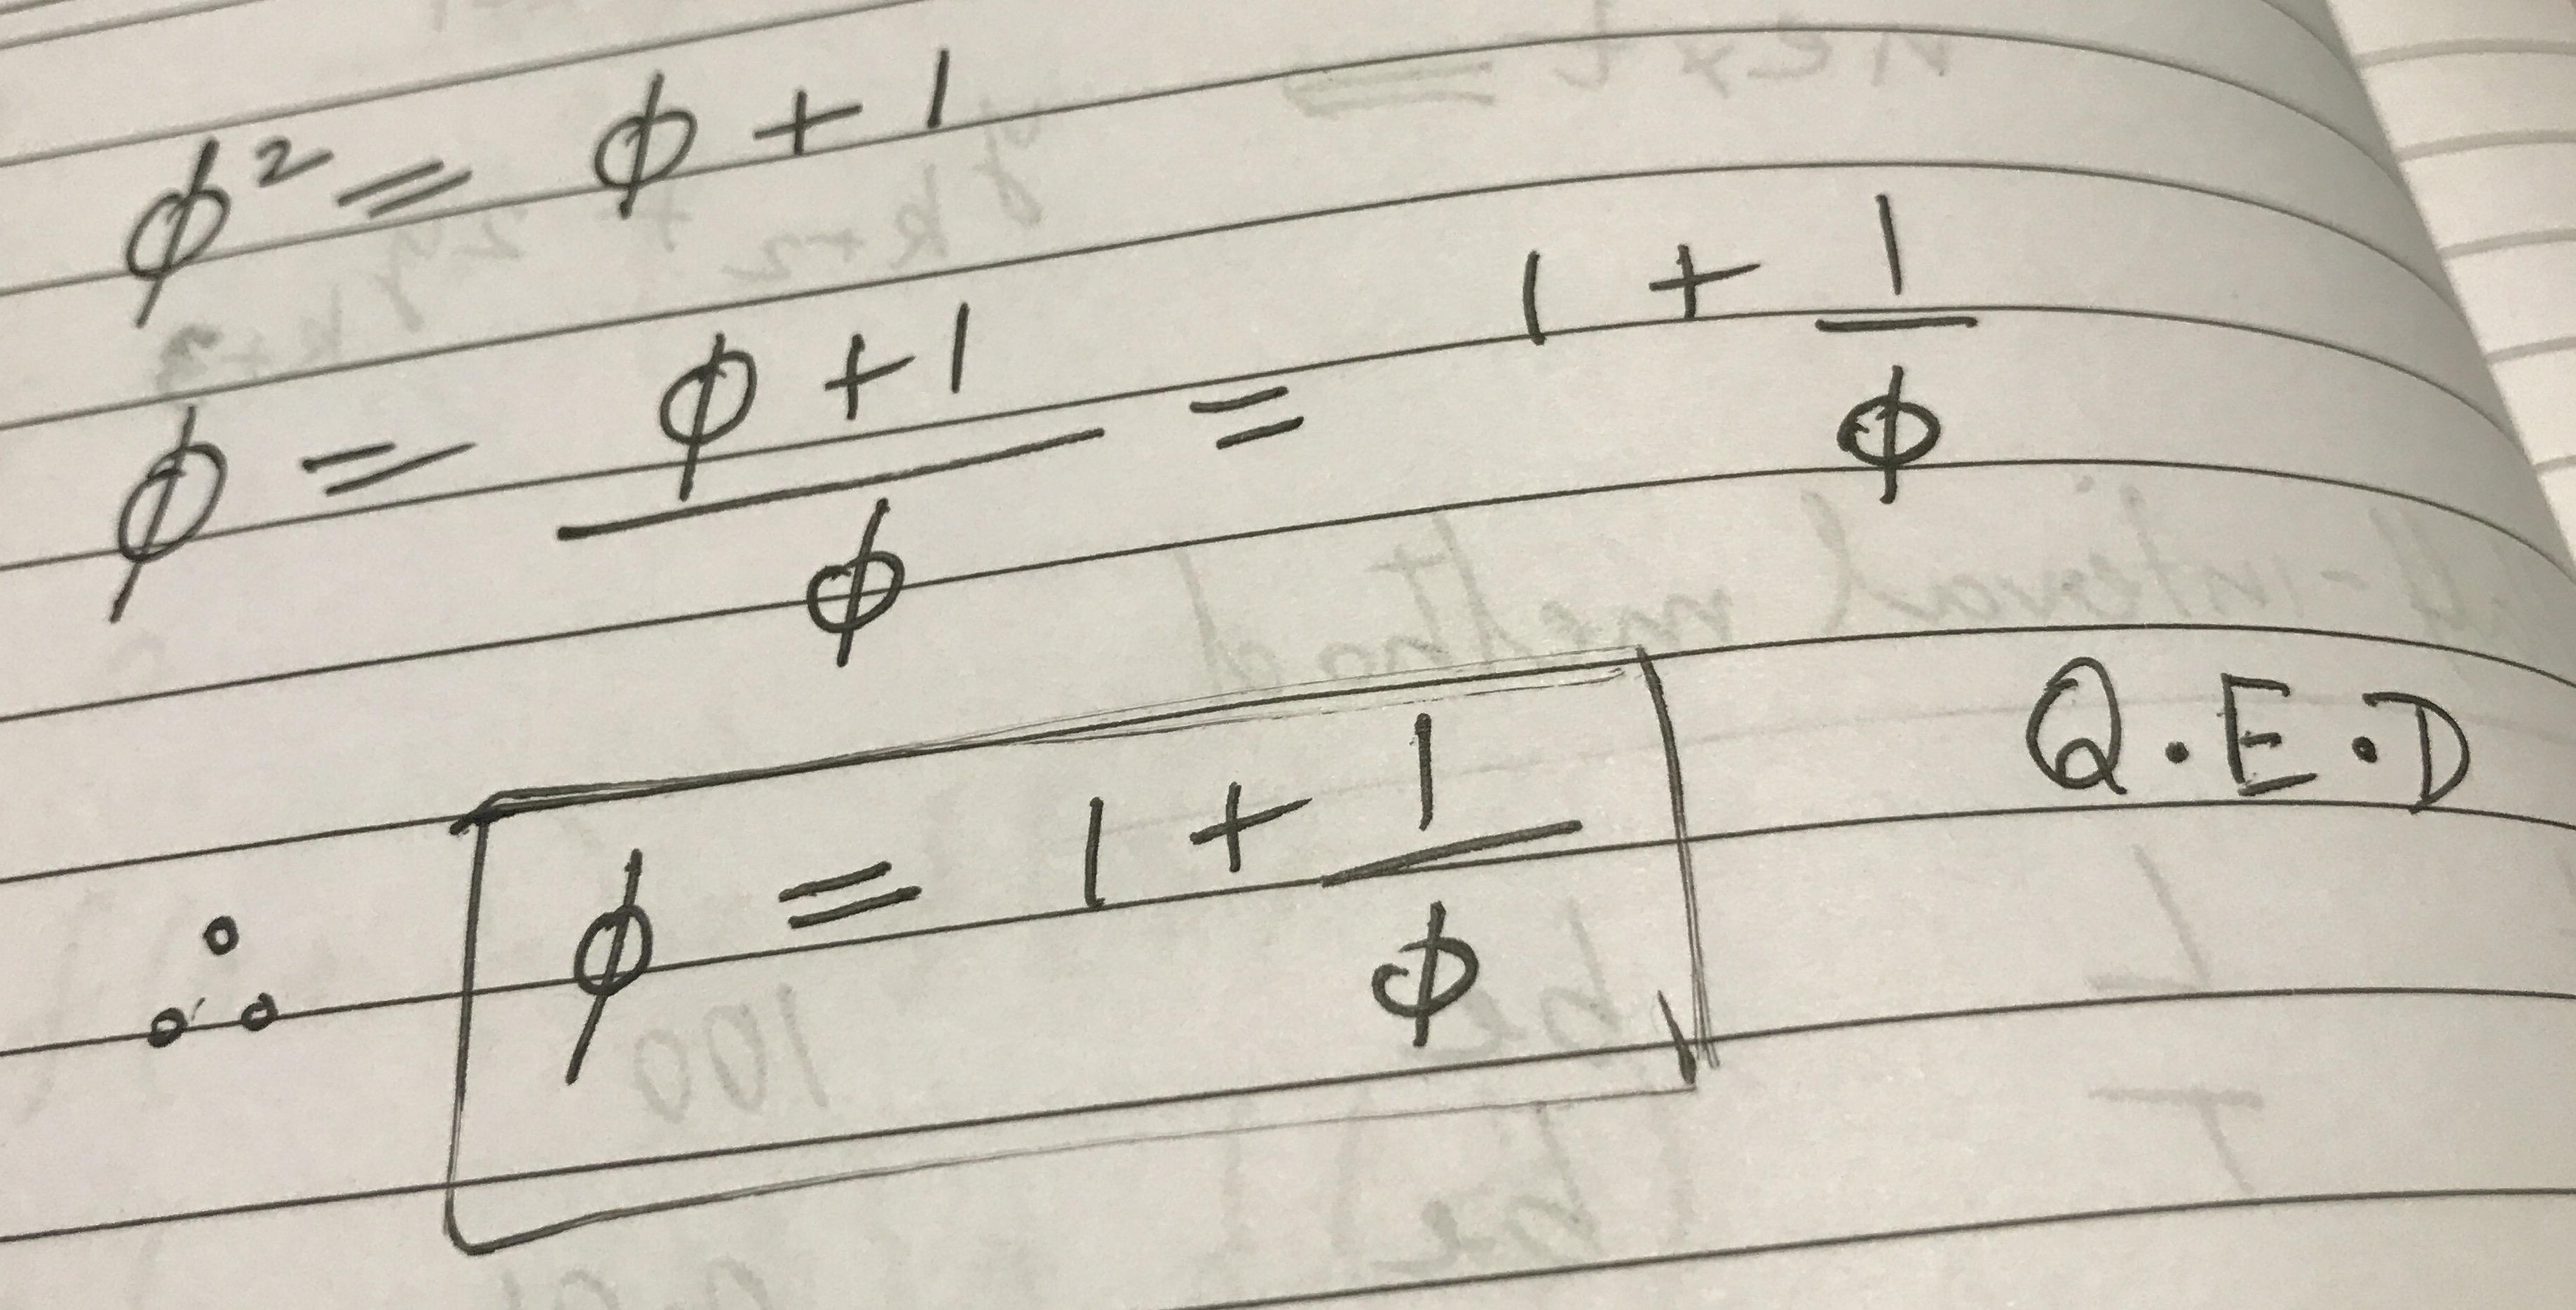 ϕ² = ϕ + 1
ϕ = (ϕ + 1)/ϕ = 1 + 1/ϕ
∴ ϕ = 1 + 1/ϕ Q.E.D